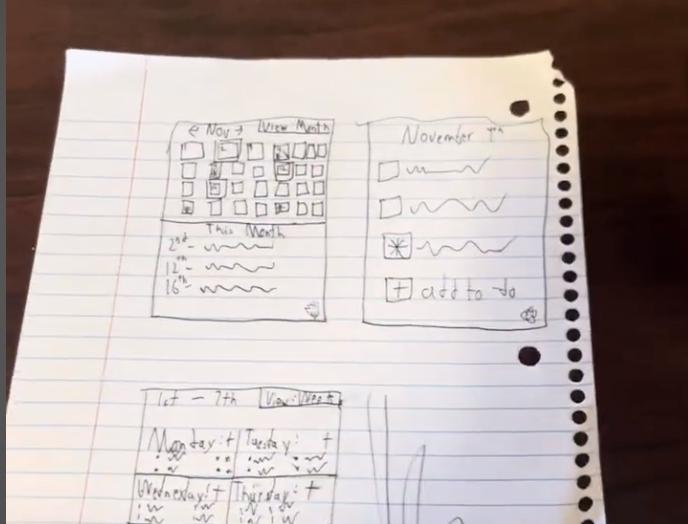 ← Nov → View Month
This Month
2nd-
12th-
16th-
November 4th
+ add to do
1st - 7th View: Week
Monday: + Tuesday: +
Wednesday: + Thursday: +